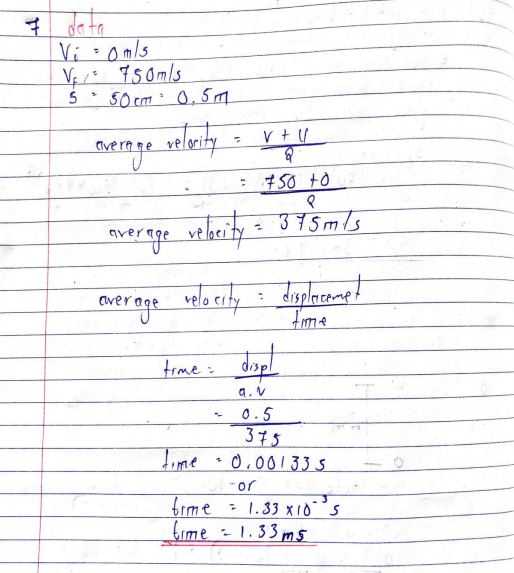 7 data
Vi = 0 m/s
Vf = 750 m/s
s = 50 cm = 0.5m
average velocity = v + u
2
= 750 + 0
2
average velocity = 375 m/s
average velocity = displacemet
time
time = displ
a.v
= 0.5
375
time = 0.00133 s
-or
time = 1.33 x 10⁻³ s
time = 1.33 ms